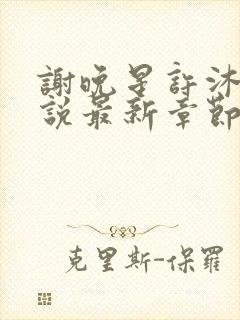 謝晚星許沐
說最新章節
克里斯-保羅